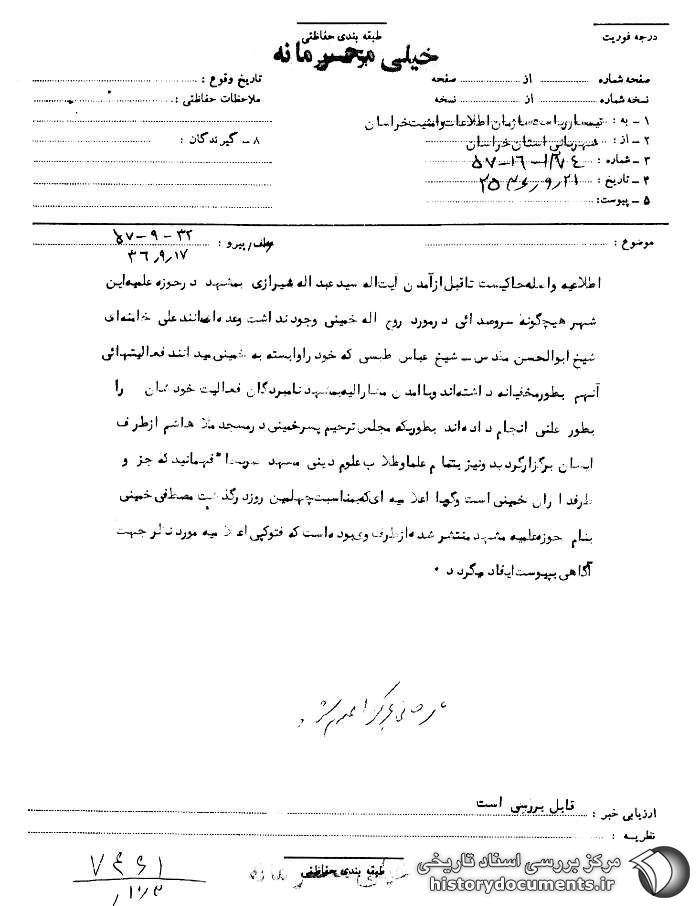 درجه فوریت
طبقه بندی حفاظتی
خیلی محرمانه
صفحه شماره : از صفحه
تاریخ وقوع :
نسخه شماره : از نسخه
ملاحظات حفاظتی :
۱ – به : تیمسار ریاست سازمان اطلاعات وامنیت خراسان
۲ – از : شهربانی استان خراسان
۸ – گیرندگان :
۳ – شماره : ۵۷-۱۶-
۴ – تاریخ : ۲۵۳۶٫۹٫۲۱
۵ – پیوست:
موضوع :
عطف/پیرو : ۵۷-۹-۳۲
۳۶٫۹٫۱۷
اطلاعیه واصله حاکیست تاقبل ازآمدن آیت اله سید عبد اله شیرازی بمشهد در حوزه علمیه این
شهر هیچگونه سروصدائی در مورد روح اله خمینی وجود نداشت وعده ای مانند علی خامنه ای
شیخ ابوالحسن مقدس – شیخ عباس طبسی که خود را وابسته به خمینی میدانند فعالیتهائی
آنهم بطور مخفیانه داشته اند وبا آمدن مشارالیه بمشهد نامبردگان فعالیت خودشان را
بطور علنی انجام داده اند بطوریکه مجلس ترحیم پسر خمینی در مسجد ملا هاشم از طرف
ایشان برگزار گردید ونیز بتمام علما وطلاب علوم دینی مشهد صریحا" فهمانید که جز و
طرفداران خمینی است و اعلامیه ای که بمناسبت چهلمین روز درگذشت مصطفی خمینی
بنام حوزه علمیه مشهد منتشر شده از طرف وی بوده است که فتوکپی اعلامیه مورد نظر جهت
آگاهی بپیوست ایفاد میگردد .
ارزیابی خبر : قابل بررسی است
نظریه :
طبقه بندی حفاظتی
مرکز بررسی اسناد تاریخی
historydocuments.ir